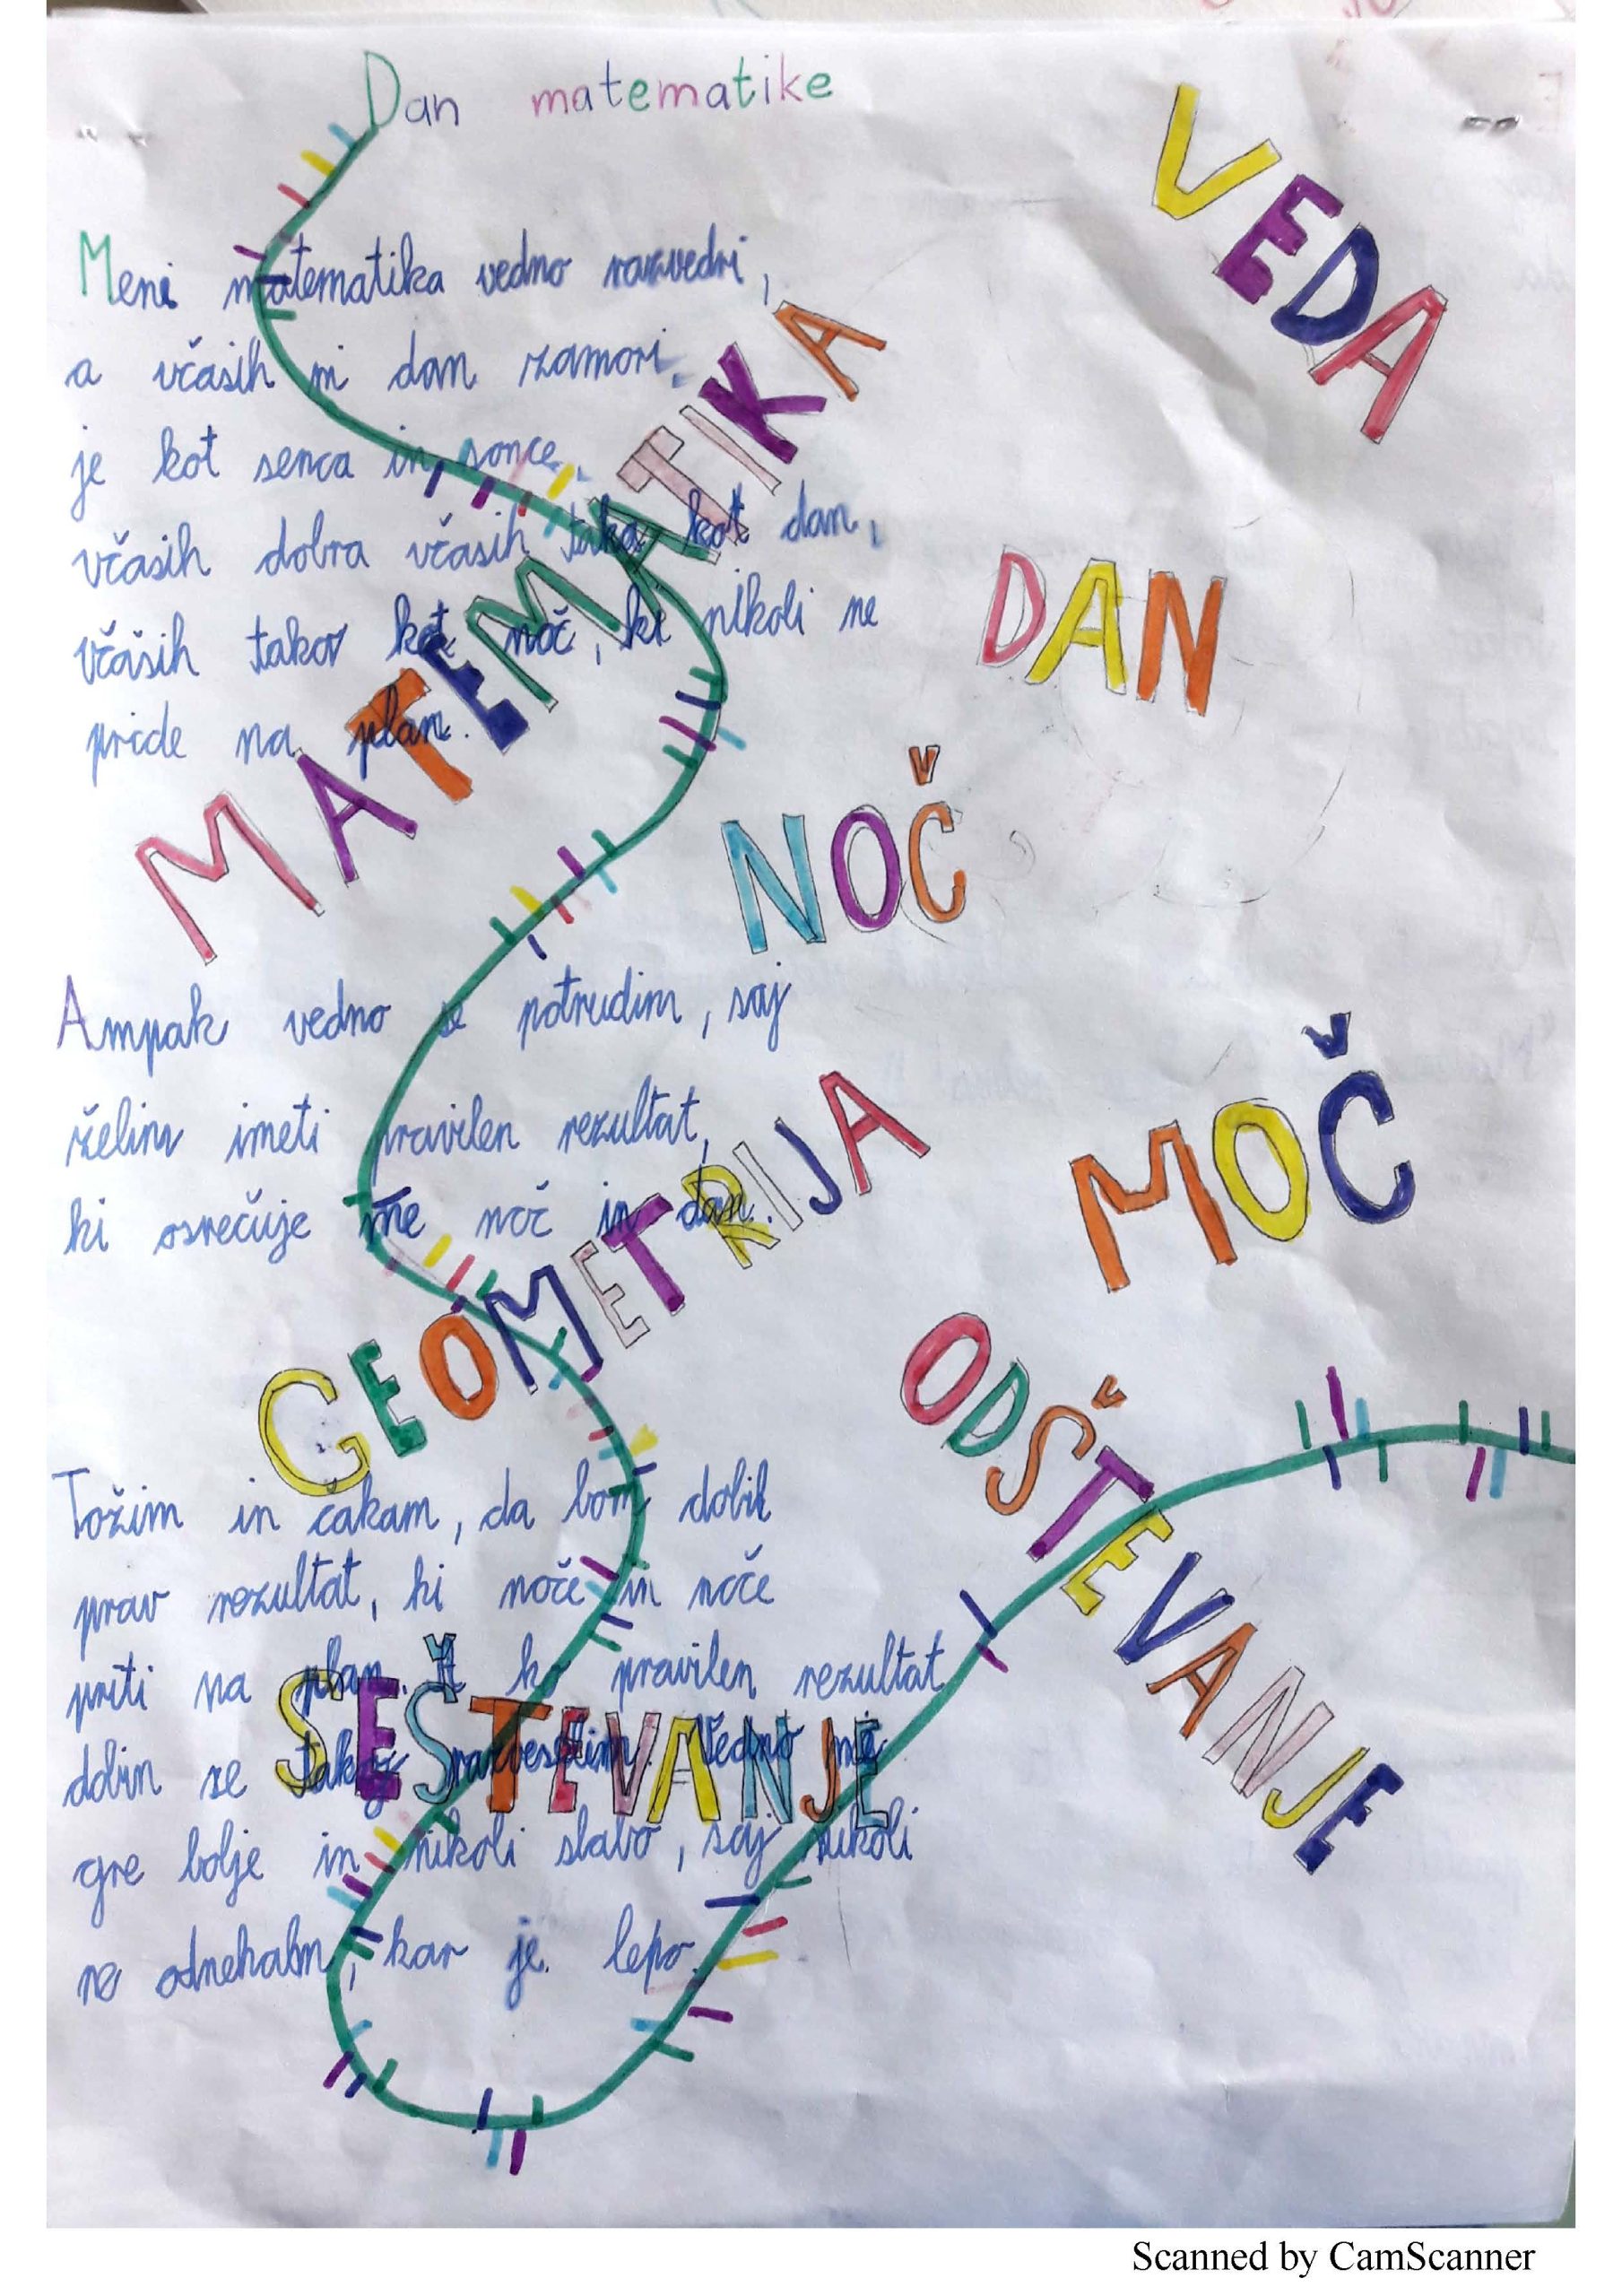 Dan matematike
VEDA
Meni matematika vedno razvedri,
a včasih mi dan zamori,
je kot senca in sonce,
včasih dobra včasih taka kot dan,
včasih takov kot noč, ki nikoli ne
pride na plan.
MATEMATIKA
DAN
NOČ
Ampak vedno se potrudim, saj
želim imeti pravilen rezultat,
ki osrečuje me noč in dan.
MOČ
GEOMETRIJA
ODŠTEVANJE
Tožim in čakam, da bom dobil
prav rezultat, ki noče in noče
priti na plan. ko pravilen rezultat
dobim se takoj razveselim. Vedno mi
gre bolje in nikoli slabo, saj nikoli
ne odneham, kar je lepo.
SEŠTEVANJE
Scanned by CamScanner